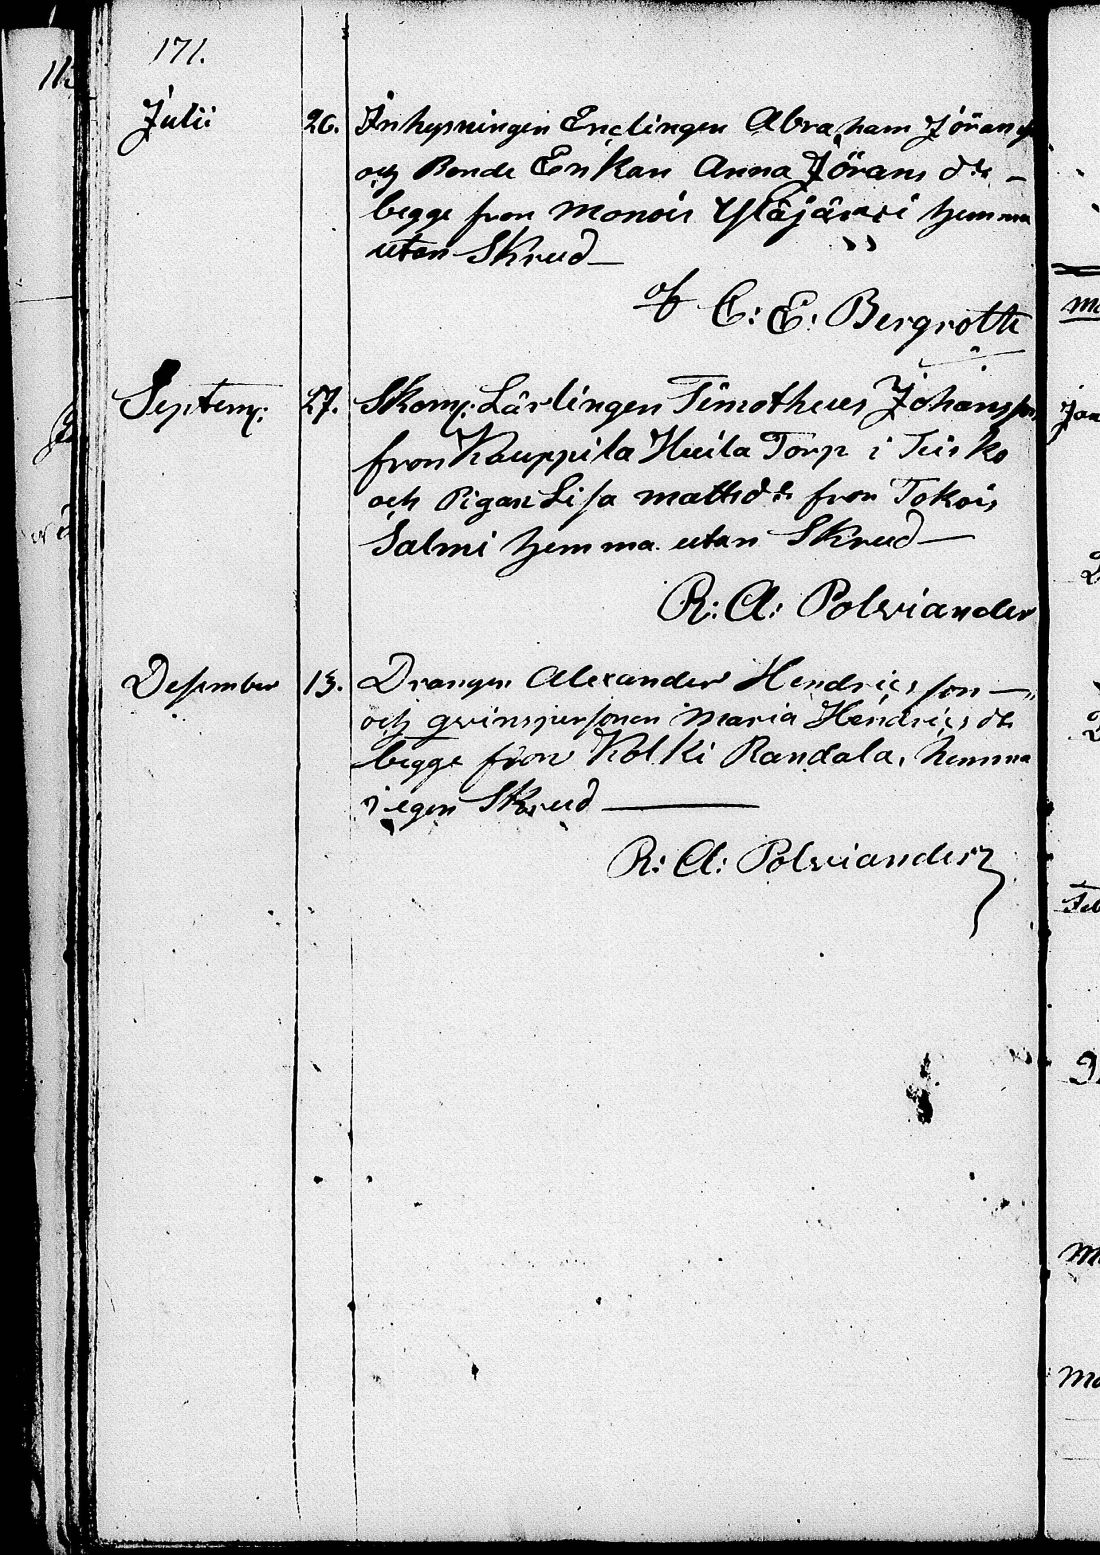 171.
Julii 26. Inhysningen Enclingen Abraham Jörans
och Bonde Enkan Anna Jörans dtr —
begge fron Monois Yläjärvi hemma
utan Skrud —
af C: E: Bergroth
Septemr: 27. Skom: Lärlingen Timotheus Johansson
fron Kauppila Huila Torp i Teisko
och Pigan Lisa Mattsdtr fron Tokois
Salmi hemma utan Skrud —
R: A: Polviander
Desember 13. Drangen Alexander Hendricsson —
och qvinspersonen Maria Hendricsdtr
begge fron Kolki Randala, hemma
i egen Skrud —
R: A: Polviander